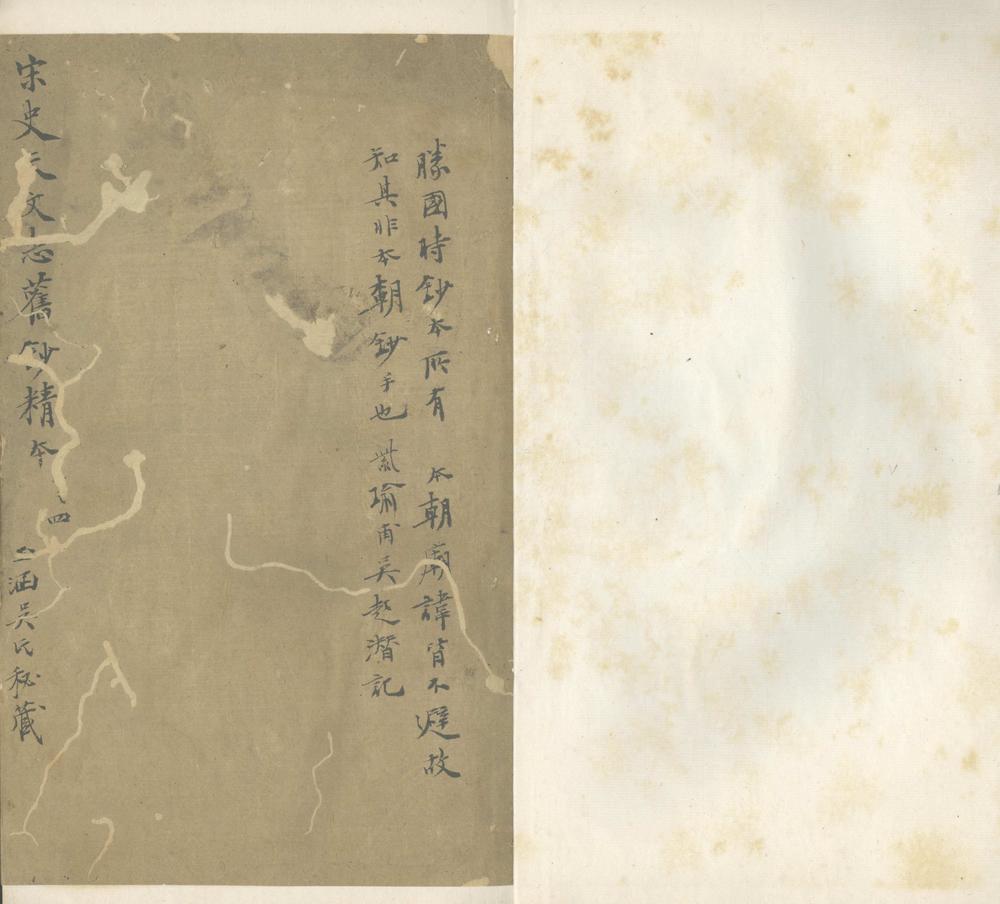 勝國時鈔本所有 本朝廟諱皆不避故
知其非本朝鈔手也 紫瑜甫吳超潛記
宋史天文志舊鈔精本 四
涵吳氏秘藏